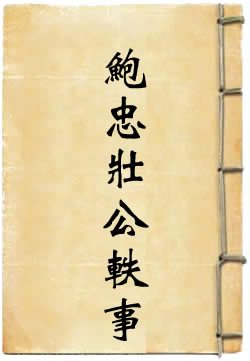 鮑忠壯公軼事